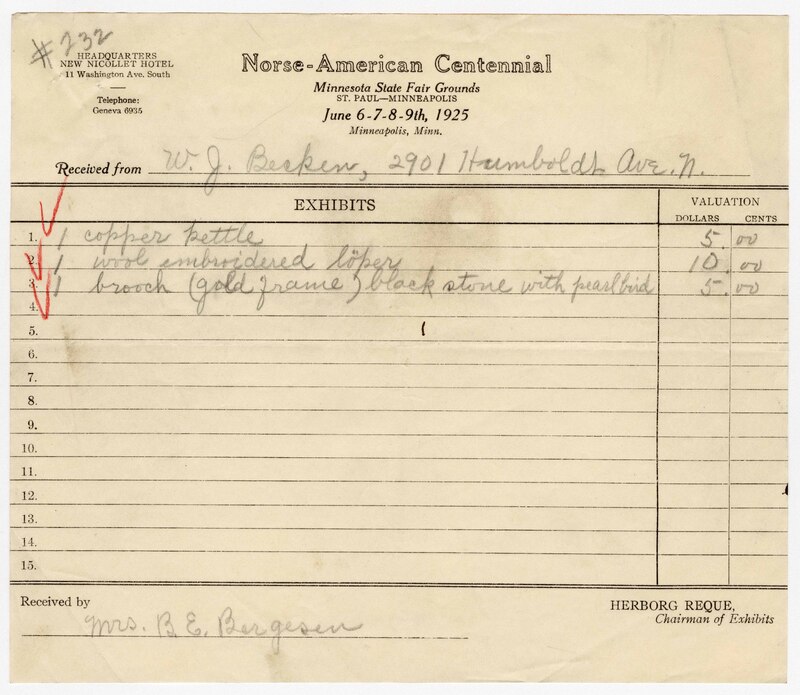 #232
HEADQUARTERS
NEW NICOLLET HOTEL
11 Washington Ave. South
Telephone:
Geneva 6935
Norse-American Centennial
Minnesota State Fair Grounds
ST. PAUL—MINNEAPOLIS
June 6-7-8-9th, 1925
Minneapolis, Minn.
Received from W. J. Becken, 2901 Humboldt Ave. N.
EXHIBITS VALUATION
DOLLARS CENTS
1. 1 copper kettle 5.00
2. 1 wool embroidered löper 10.00
3. 1 brooch (gold frame) black stone with pearl bird 5.00
4.
5.
6.
7.
8.
9.
10.
11.
12.
13.
14.
15.
Received by Mrs. B. E. Bergesen
HERBORG REQUE,
Chairman of Exhibits